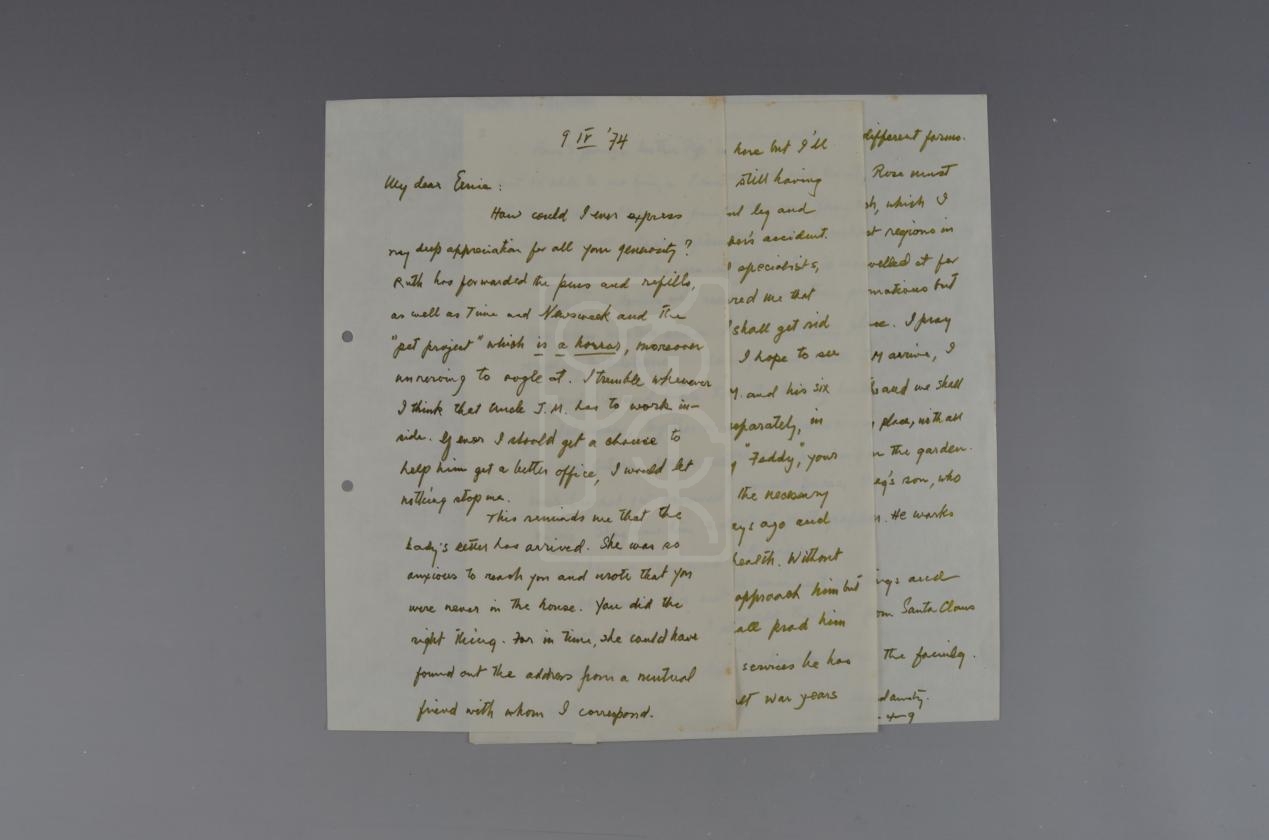 9 IV '74
My dear Ernie:
How could I ever express
my deep appreciation for all your generosity?
Ruth has forwarded the pens and refills,
as well as Time and Newsweek and the
"pet project" which is a horror, moreover
unnerving to ogle at. I tremble whenever
I think that Uncle J.M. has to work in-
side. If ever I should get a chance to
help him get a better office, I would let
nothing stop me.
This reminds me that the
Lady's letter has arrived. She was so
anxious to reach you and wrote that you
were never in the house. You did the
right thing. For in time, she could have
found out the address from a mutual
friend with whom I correspond.
here but I'll
still having
leg and
accident.
specialists,
me that
shall get rid
I hope to see
M. and his six
separately, in
"Feddy", your
the necessary
ago and
health. Without
approach him but
prod him
services he has
war years
different forms.
Rose must
which I
regions in
at for
but
I pray
M arrive, I
and we shall
place, with all
the garden.
son, who
He works
and
Santa Claus
the family.